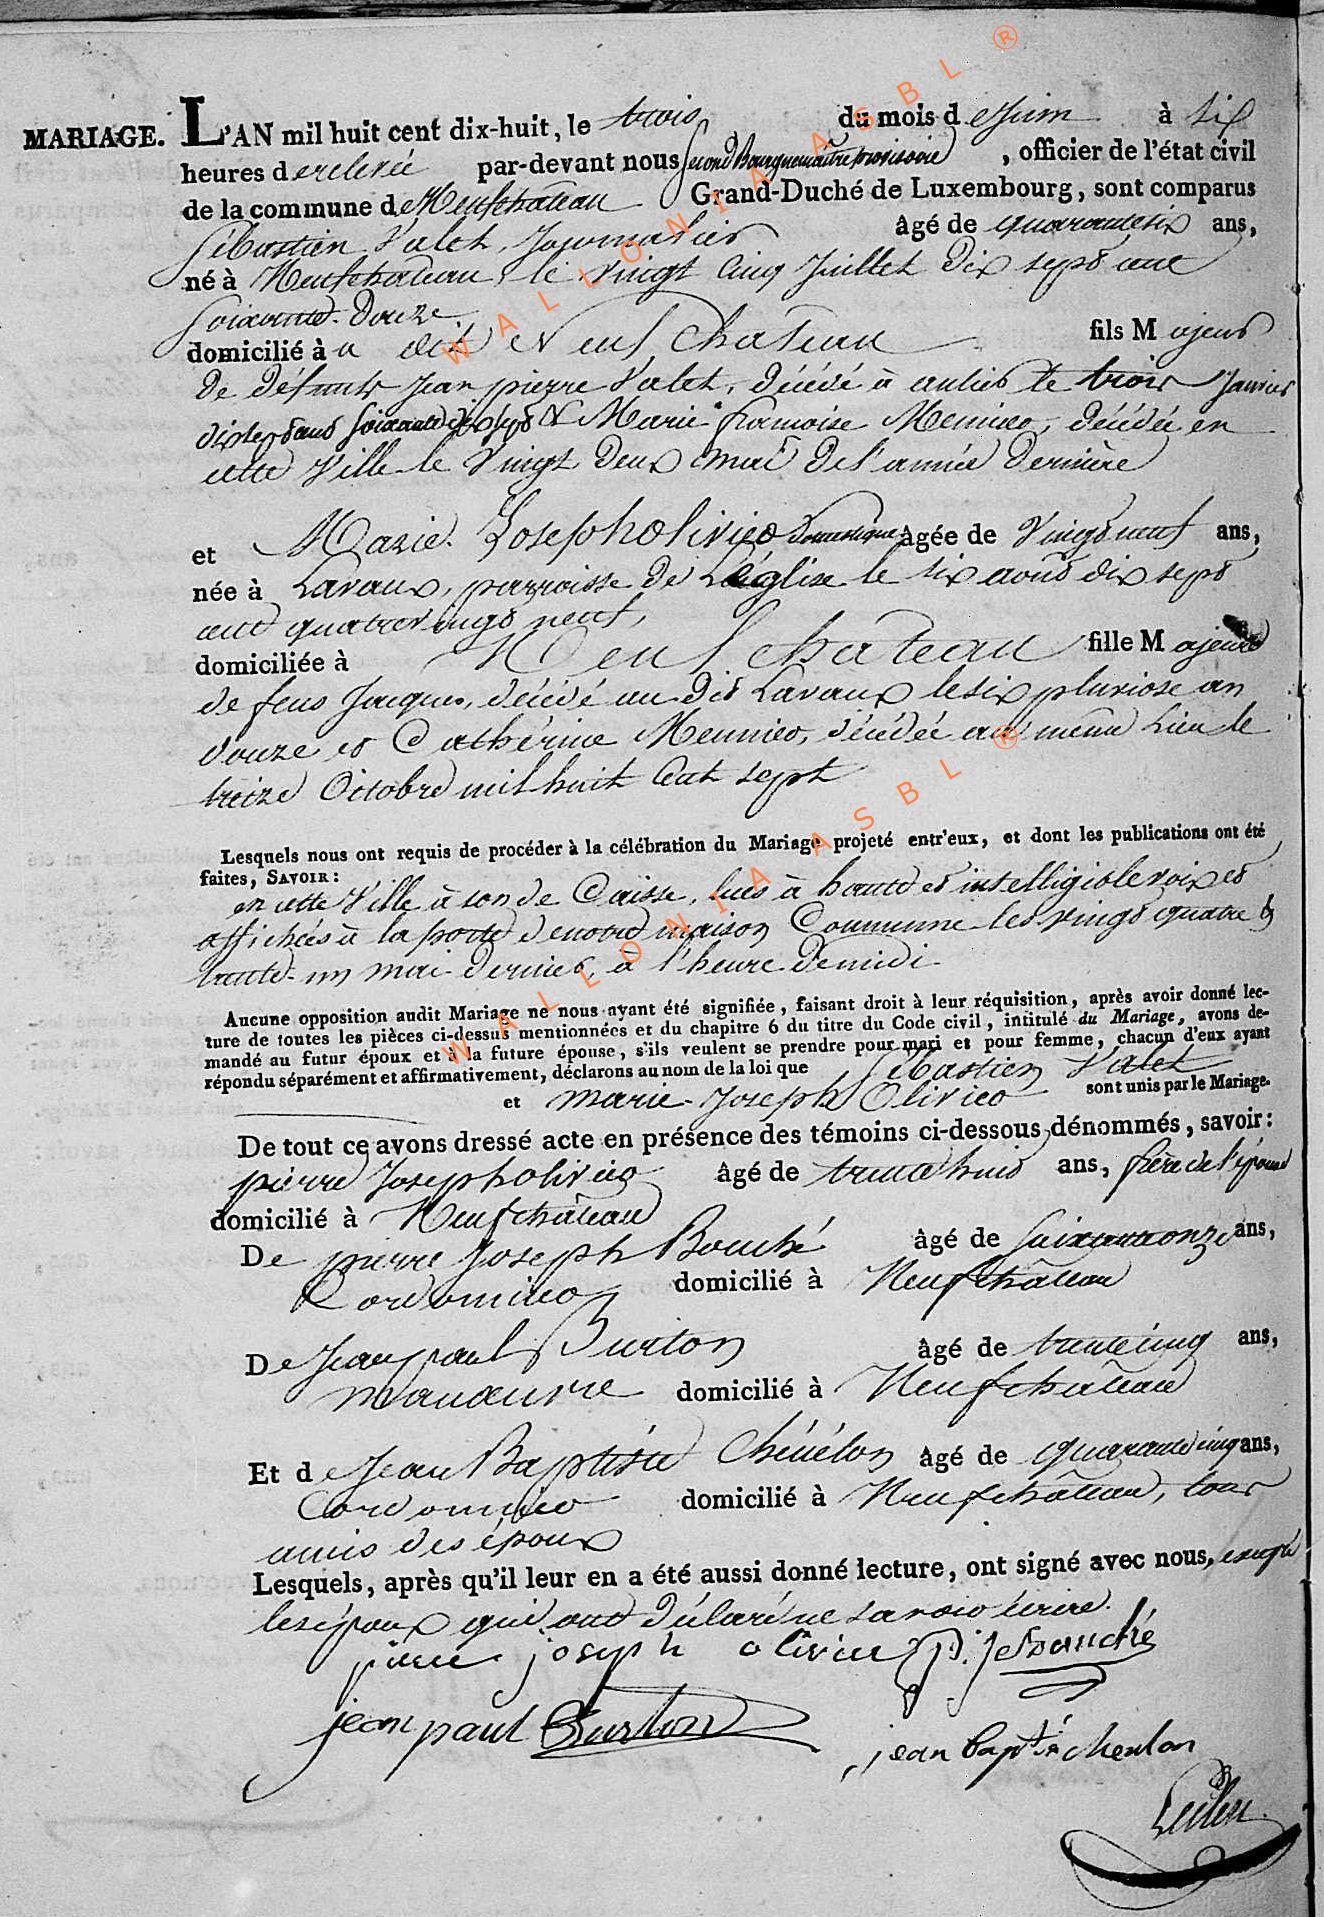 MARIAGE. L'AN mil huit cent dix-huit, le trois du mois de Juin à six
heures de relevée par-devant nous Second Bourguemaitre provisoire, officier de l'état civil
de la commune de Neufchateau Grand-Duché de Luxembourg, sont comparus
Sébastien Valet, Journalier âgé de quarantesix ans,
né à Neufchateau, le vingt cinq Juillet dix sept cent
Soixante-Douze
domicilié à au dit Neufchateau fils Majeur
de défunts Jean pierre Valet, décédé à le trois Janvier
dix sept cent soixante dix sept & Marie françoise Meunier, décédée en
cette Ville le vingt deux mai de l'année dernière
et Marie Joseph olivier Domestique âgée de vingt neuf ans,
née à Lavaux, parroisse de Léglise le six août dix sept
cent quatrevingt neuf,
domiciliée à Neufchateau fille Majeure
de feus Jacques, décédé au dit Lavaux le six pluviose an
douze et Cathérine Meunier, décédée au même Lieu le
treize Octobre mil huit Cent sept
Lesquels nous ont requis de procéder à la célébration du Mariage projeté entr'eux, et dont les publications ont été
faites, SAVOIR:
en cette Ville à son de Caisse, lues à haute et intelligible voix et
affichées à la porte de notre maison Commune les vingt quatre &
trente-un mai dernier, à l'heure de midi
Aucune opposition audit Mariage ne nous ayant été signifiée, faisant droit à leur réquisition, après avoir donné lec-
ture de toutes les pièces ci-dessus mentionnées et du chapitre 6 du titre du Code civil, intitulé du Mariage, avons de-
mandé au futur époux et à la future épouse, s'ils veulent se prendre pour mari et pour femme, chacun d'eux ayant
répondu séparément et affirmativement, déclarons au nom de la loi que Sébastien Valet
et marie-Joseph Olivier sont unis par le Mariage.
De tout ce avons dressé acte en présence des témoins ci-dessous dénommés, savoir:
pierre Joseph olivier âgé de trente huit ans, frère de l'épouse
domicilié à Neufchâteau
De pierre Joseph Bouché âgé de soixante onze ans,
Cordonnier domicilié à Neufchâteau
De Jean paul Burton âgé de trente cinq ans,
manœuvre domicilié à Neufchâteau
Et de Jean Baptiste Chénélon âgé de quarante cinq ans,
Cordonnier domicilié à Neufchâteau, tous
amis des époux
Lesquels, après qu'il leur en a été aussi donné lecture, ont signé avec nous, excepté
les époux qui ont déclaré ne savoir écrire.
pierre joseph olivier P. J. Bouché
jean paul Burton
jean baptiste chenlon
WALLONIA ASBL ®
WALLONIA ASBL ®